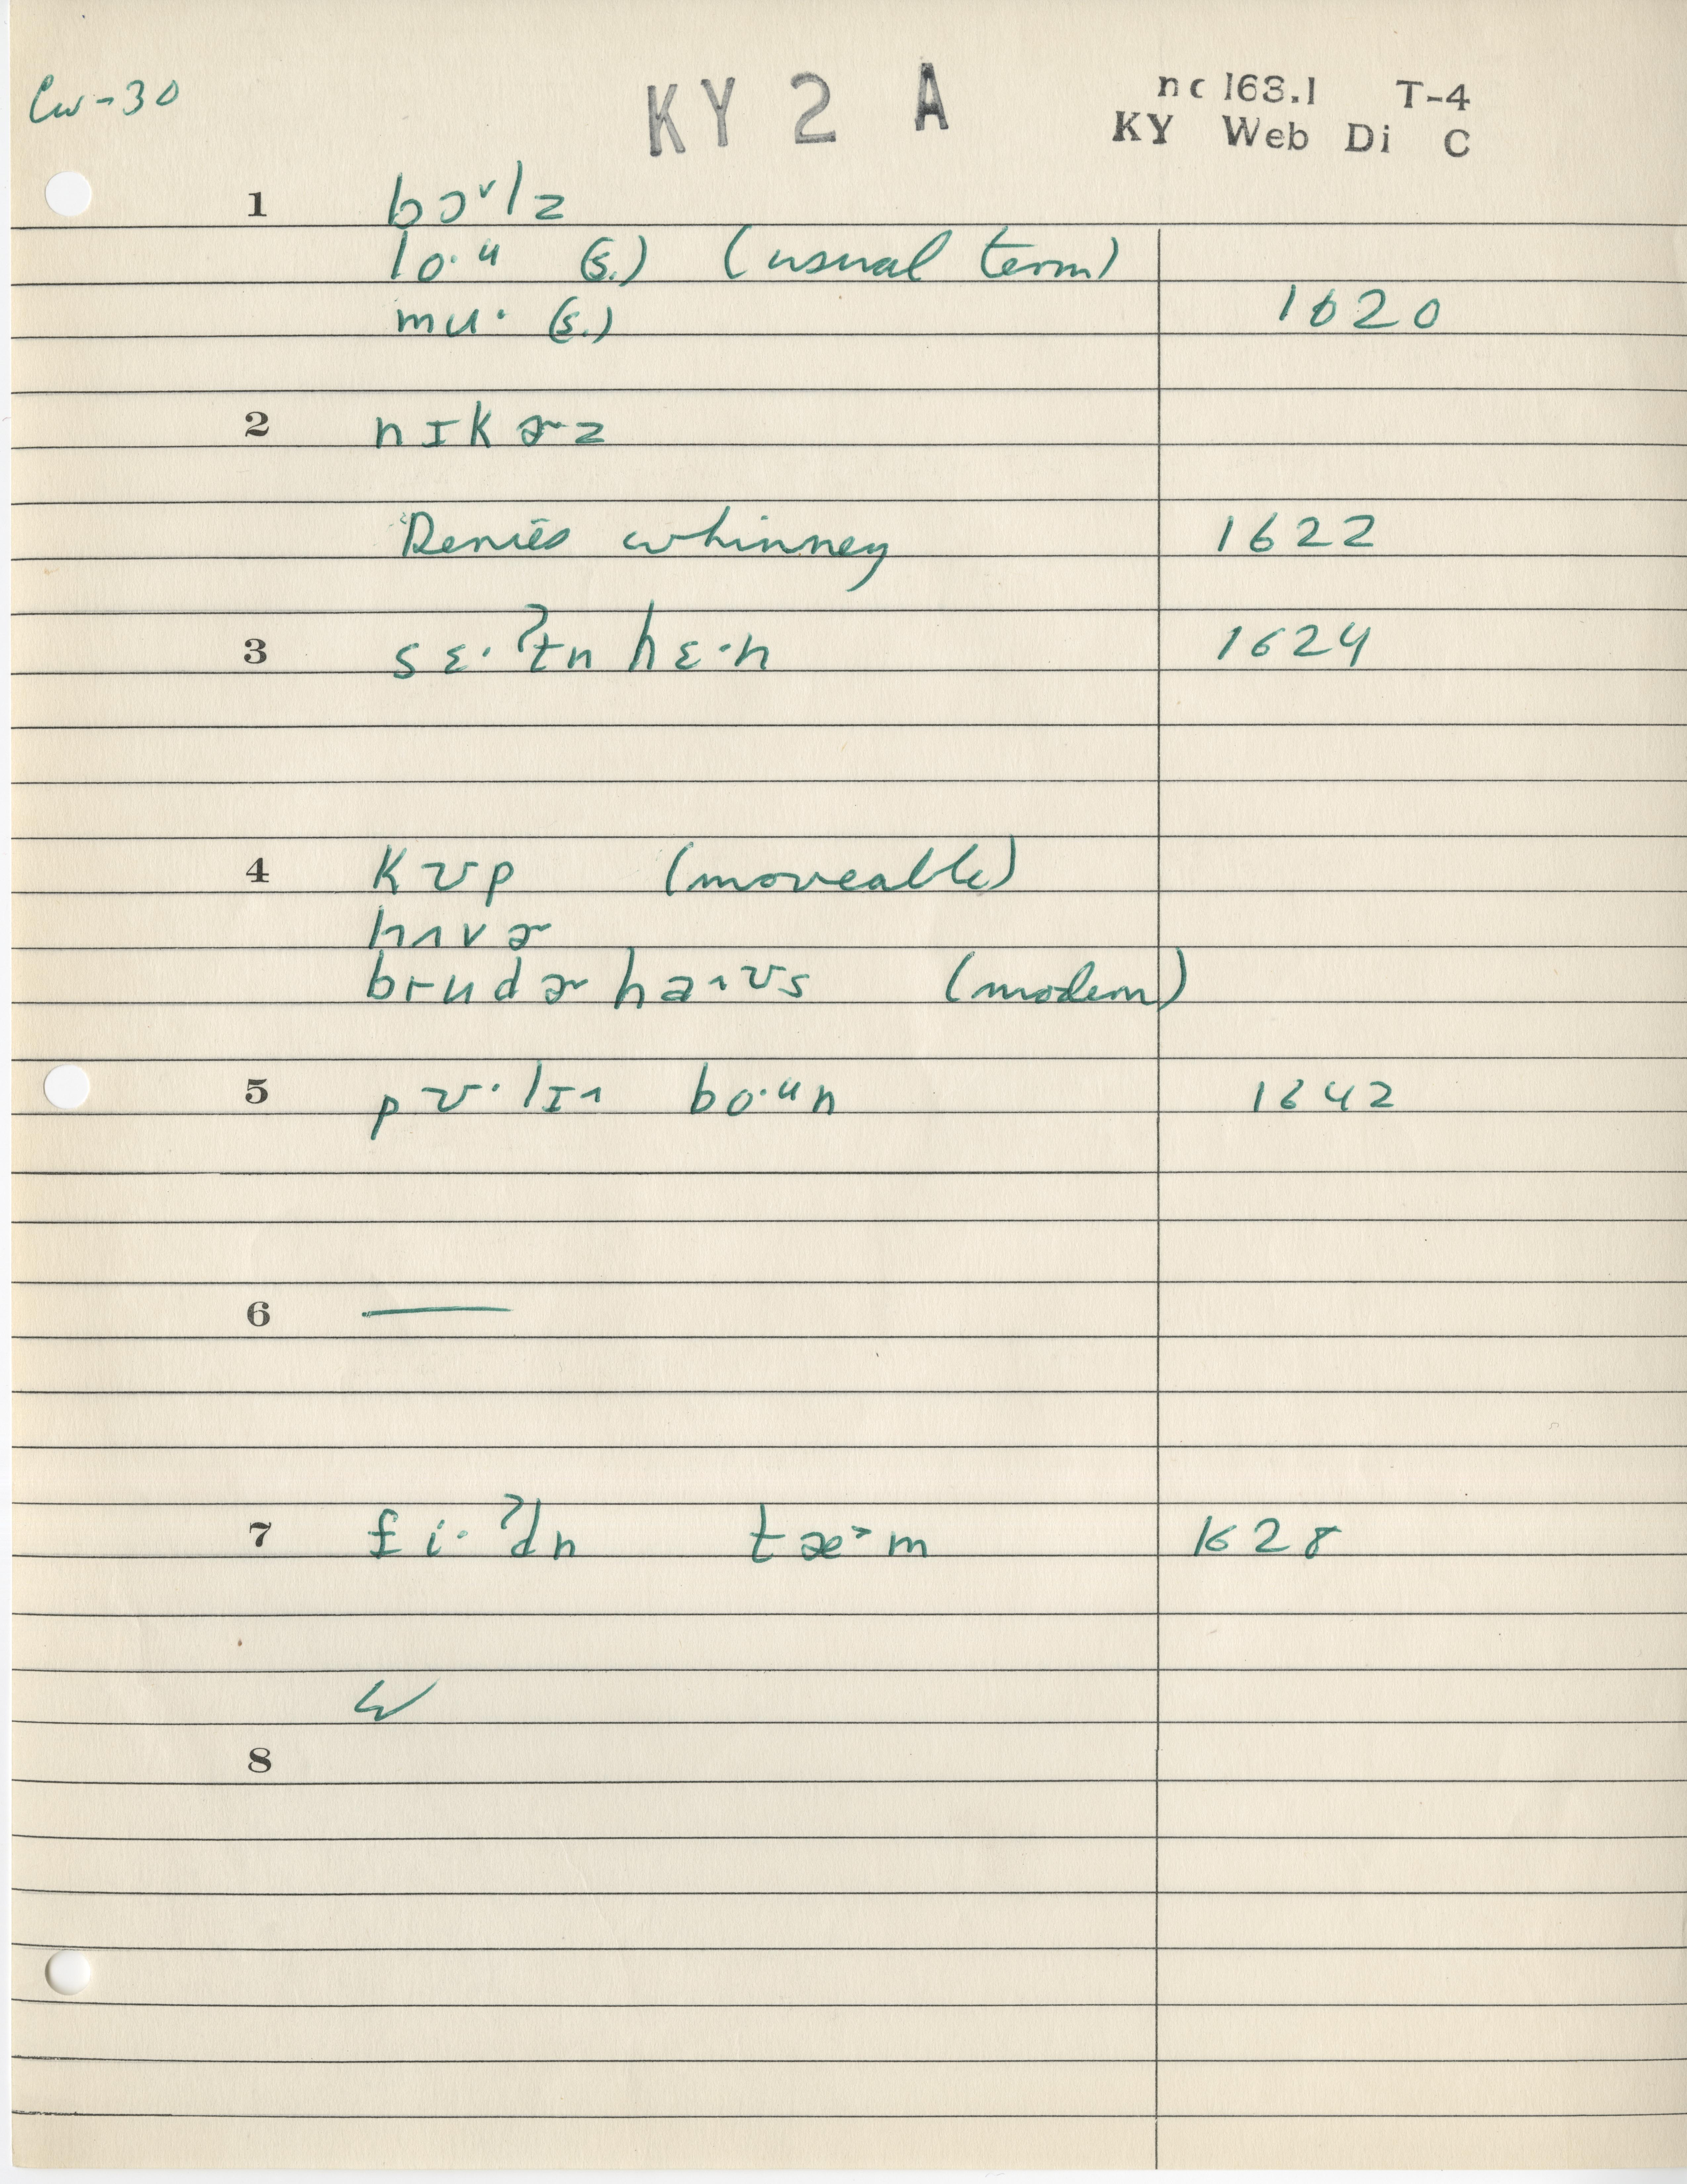 Cw-30
KY 2 A
nc 163.1 T-4
KY Web Di C
1 bɔ˅lz
lo·ᵘ (s.) (usual term)
mu· (s.) 1620
2 nɪkɚz
Denies whinney 1622
3 sɛ·ˀtn hɛ·n 1624
4 kʊp (moveable)
hʌvɚ
brudɚ haʌʊs (modern)
5 pʊ·lɪ˄ bo·ᵘn 1642
6 —
7 fi·ˀdn tæ˃m 1628
W
8